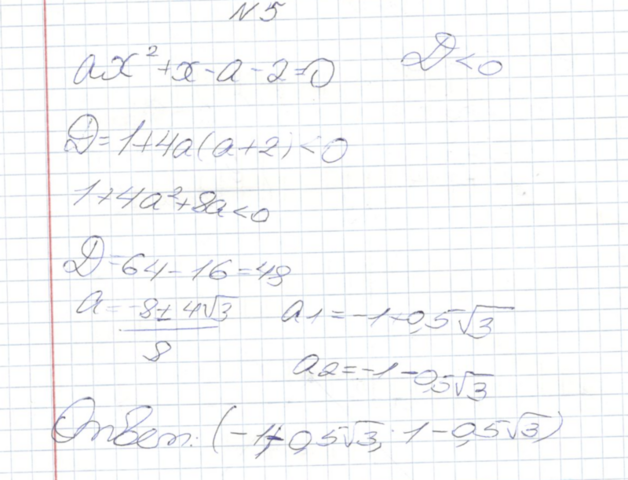 N5
ax²+x-a-2=0 D<0
D=1+4a(a+2)<0
1+4a²+8a<0
D=64-16=48
a=(-8±4√3)/8 a1=-1-0,5√3
a2=-1-0,5√3
Ответ: (-1+0,5√3; 1-0,5√3)